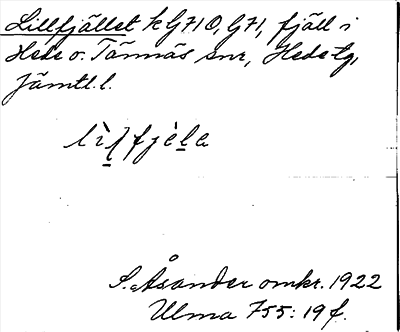 Lillfjället k G71O, G71, fjäll i
Hede o. Tännäs snr, Hede tg,
Jämtl. l.
lìl̲fjèl̲a
S. Åsander omkr. 1922
Ulma 755:19 f.